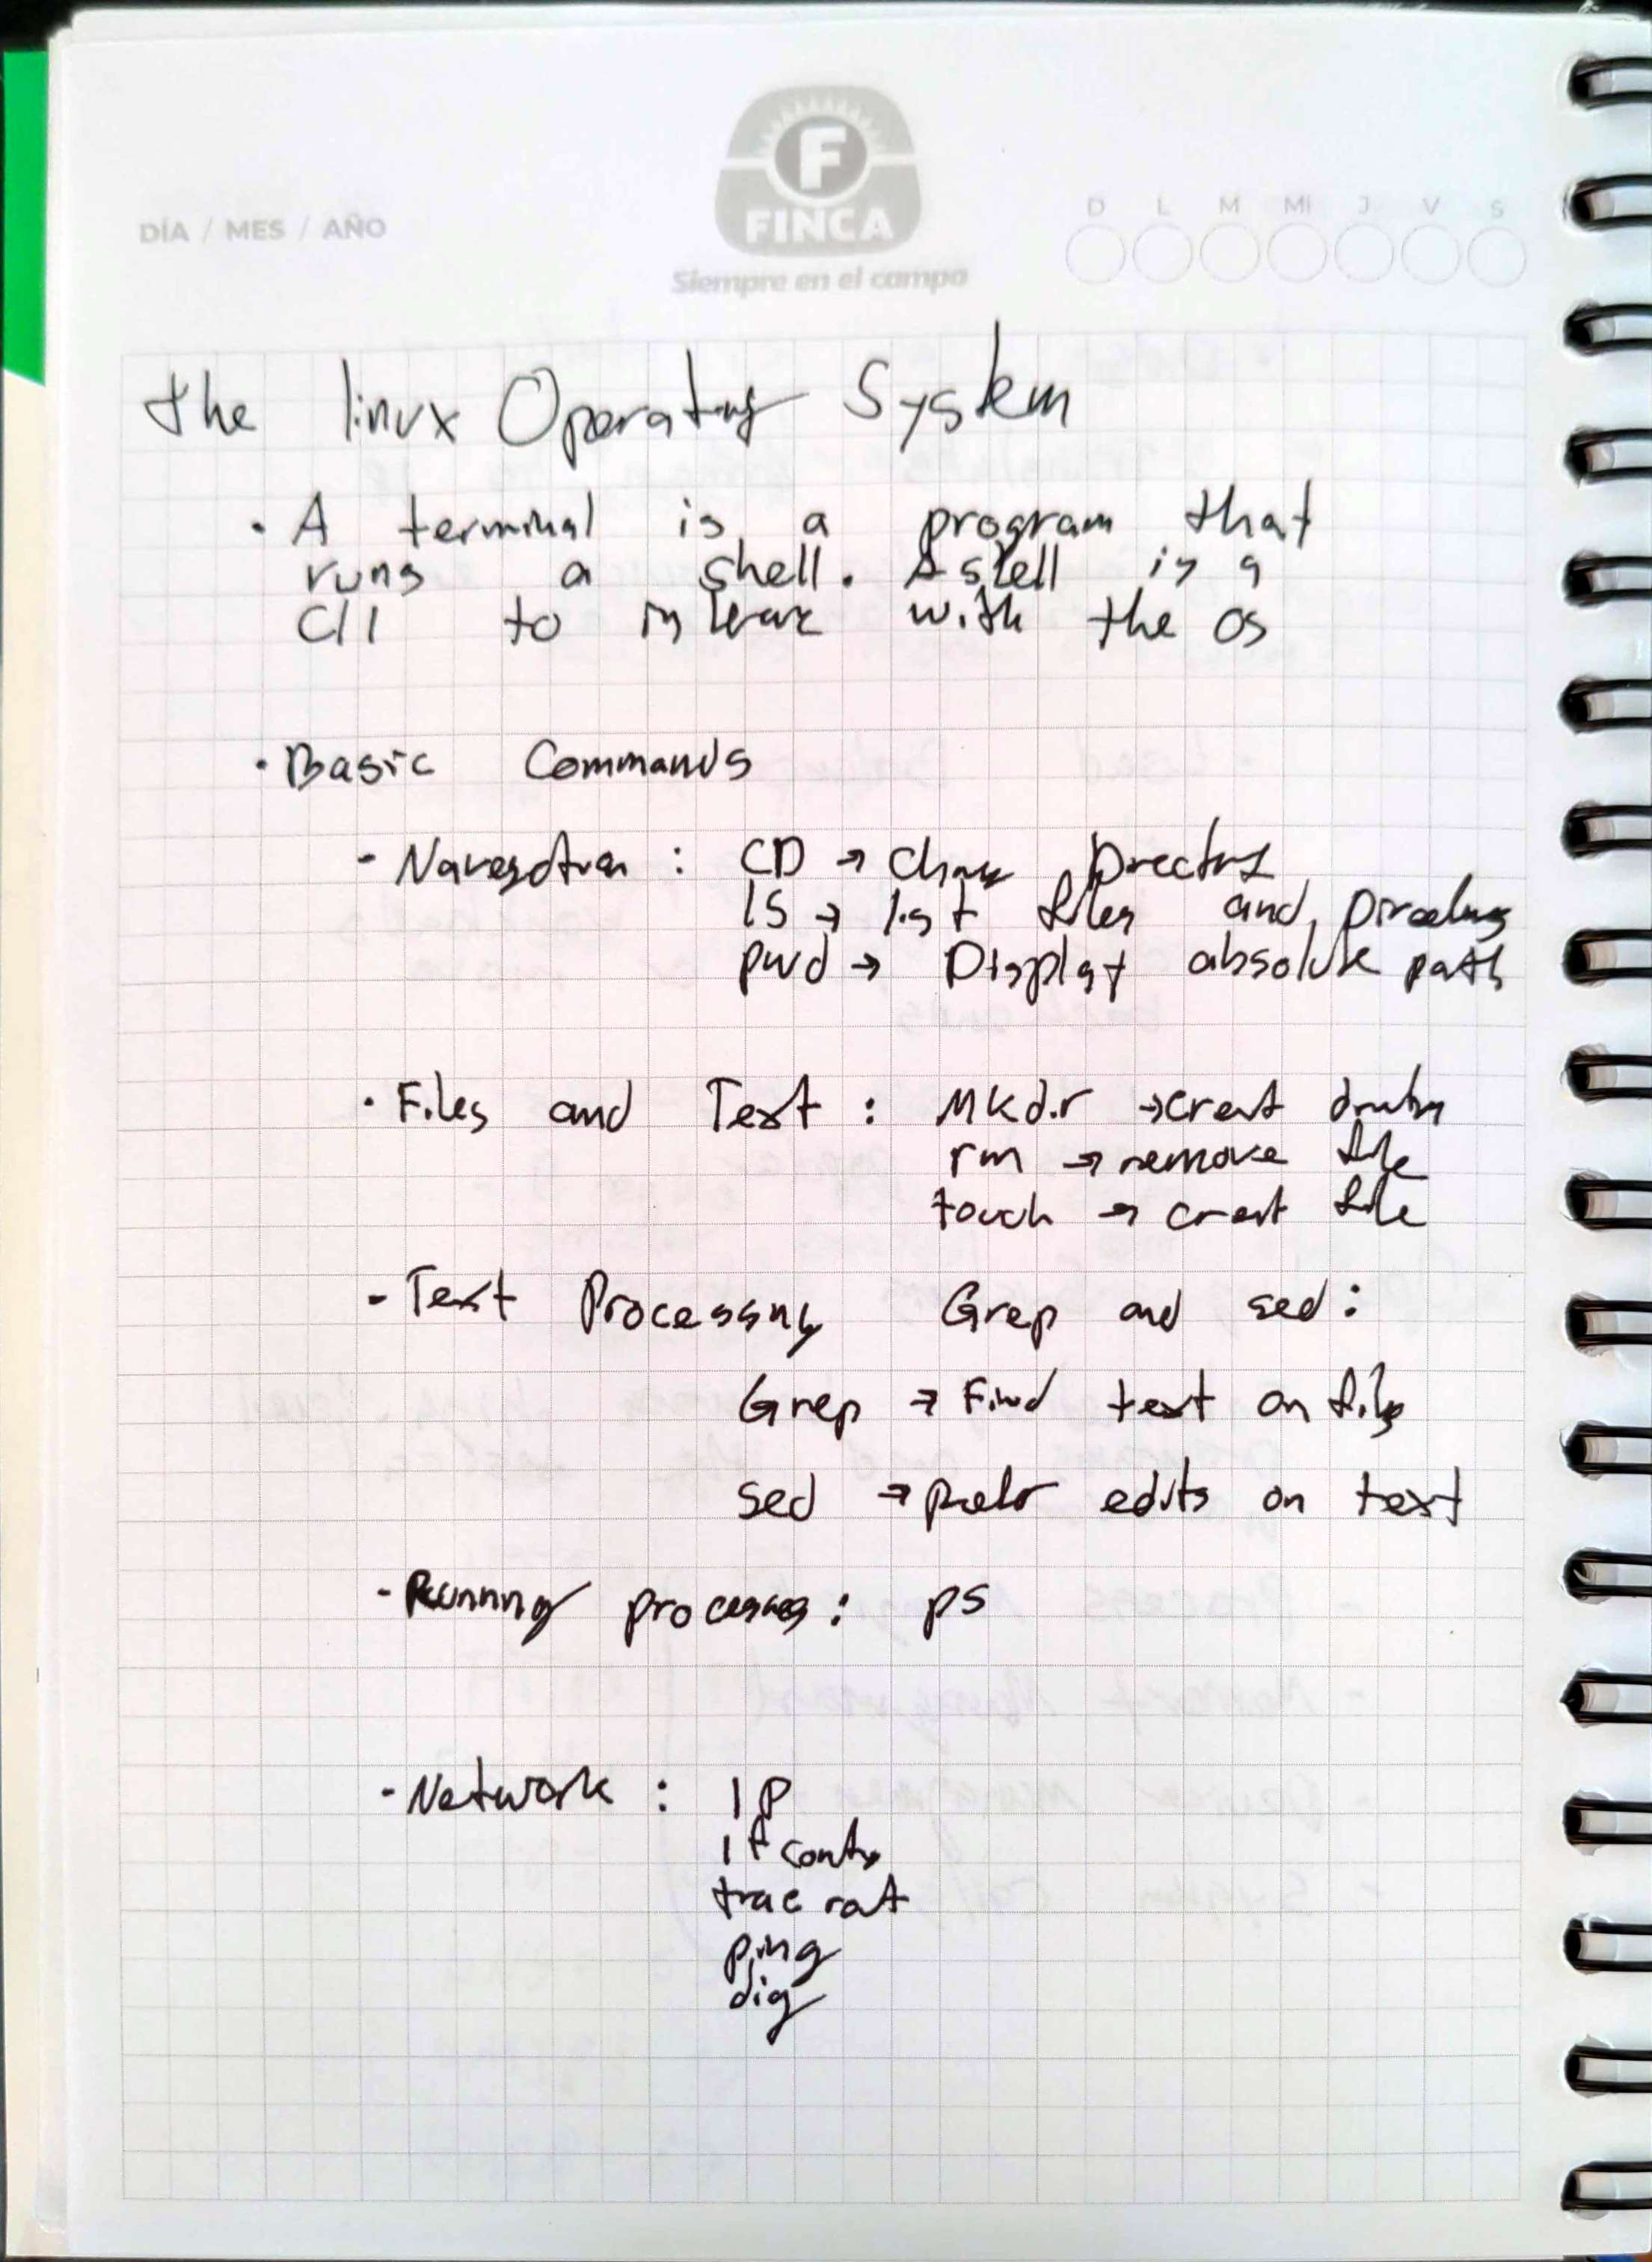 DÍA / MES / AÑO
F
FINCA
Siempre en el campo
D L M Mi J V S
the linux Operating System
· A terminal is a program that
runs a shell. A shell is a
CLI to interac with the OS
· Basic Commands
- Navegation : CD → Change Directory
ls → list files and Directories
pwd → Display absolute path
· Files and Text : Mkdir → creat
rm → remove file
touch → creat file
- Text Processing Grep and sed :
Grep → Find text on files
sed → edits on text
- Running processes : ps
- Network : IP
ifconfig
trac rout
ping
dig